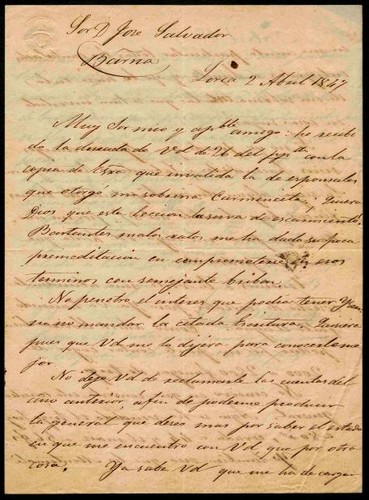 Sor D José Salvador
Barna
Lorca 2 Abril 1847
Muy Sor mio y apble amigo: he recibi
do la deseada de Vd de 26 del ppdo con la
copia de Esra que invalida la de esponsales
que otorgó mi sobrina Carmencita; quiera
Dios que esta leccion la sirva de escarmiento.
Bastantes malos ratos me ha dado su poca
premeditacion en comprometerse en esos
terminos con semejante briban.
No penetro el interes que podia tener
en no mandar la citada Escritura. Quiera
pues que Vd me lo dijera para conocerle me
jor.
No deje Vd de reclamarle las cuentas del
año anterior, a fin de podernos producir
la general que deseo mas por saber el estado
en que me encuentro con Vd que por otra
cosa. Ya sabe Vd que me ha de cargar